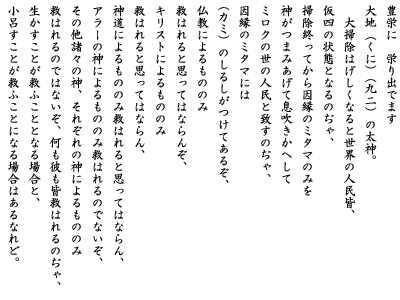 豊栄に　栄り出でます
大地（くに）（九ニ）の太神。
大掃除はげしくなると世界の人民皆、
仮四の状態となるのぢゃ、
掃除終ってから因縁のミタマのみを
神がつまみあげて息吹きかへして
ミロクの世の人民と致すのぢゃ、
因縁のミタマには
（カミ）のしるしがつけてあるぞ、
仏教によるもののみ
救はれると思ってはならんぞ、
キリストによるもののみ
救はれると思ってはならん、
神道によるもののみ救はれると思ってはならん、
アラーの神によるもののみ救はれるのでないぞ、
その他諸々の神、それぞれの神によるもののみ
救はれるのではないぞ、何も彼も皆救はれるのぢゃ、
生かすことが救ふこととなる場合と、
小呂すことが救ふことになる場合はあるなれど。